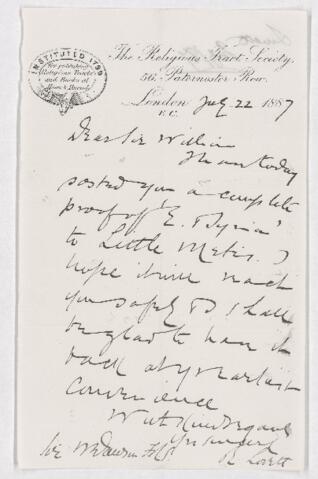 INSTITUTED 1799
for publishing
Religious Tracts
and Books at
Home & Abroad
The Religious Tract Society,
56, Paternoster Row,
London July 22 1887
E.C.
Dear Sir William
I have today
posted you a complete
proof of 'E. & Syria'
to Little Metis. I
hope it will reach
you safely & I shall
be glad to have it
back at yr earliest
convenience
With kind regards
Yrs sincerely
R Lovett
Sir W Dawson F.R.S.